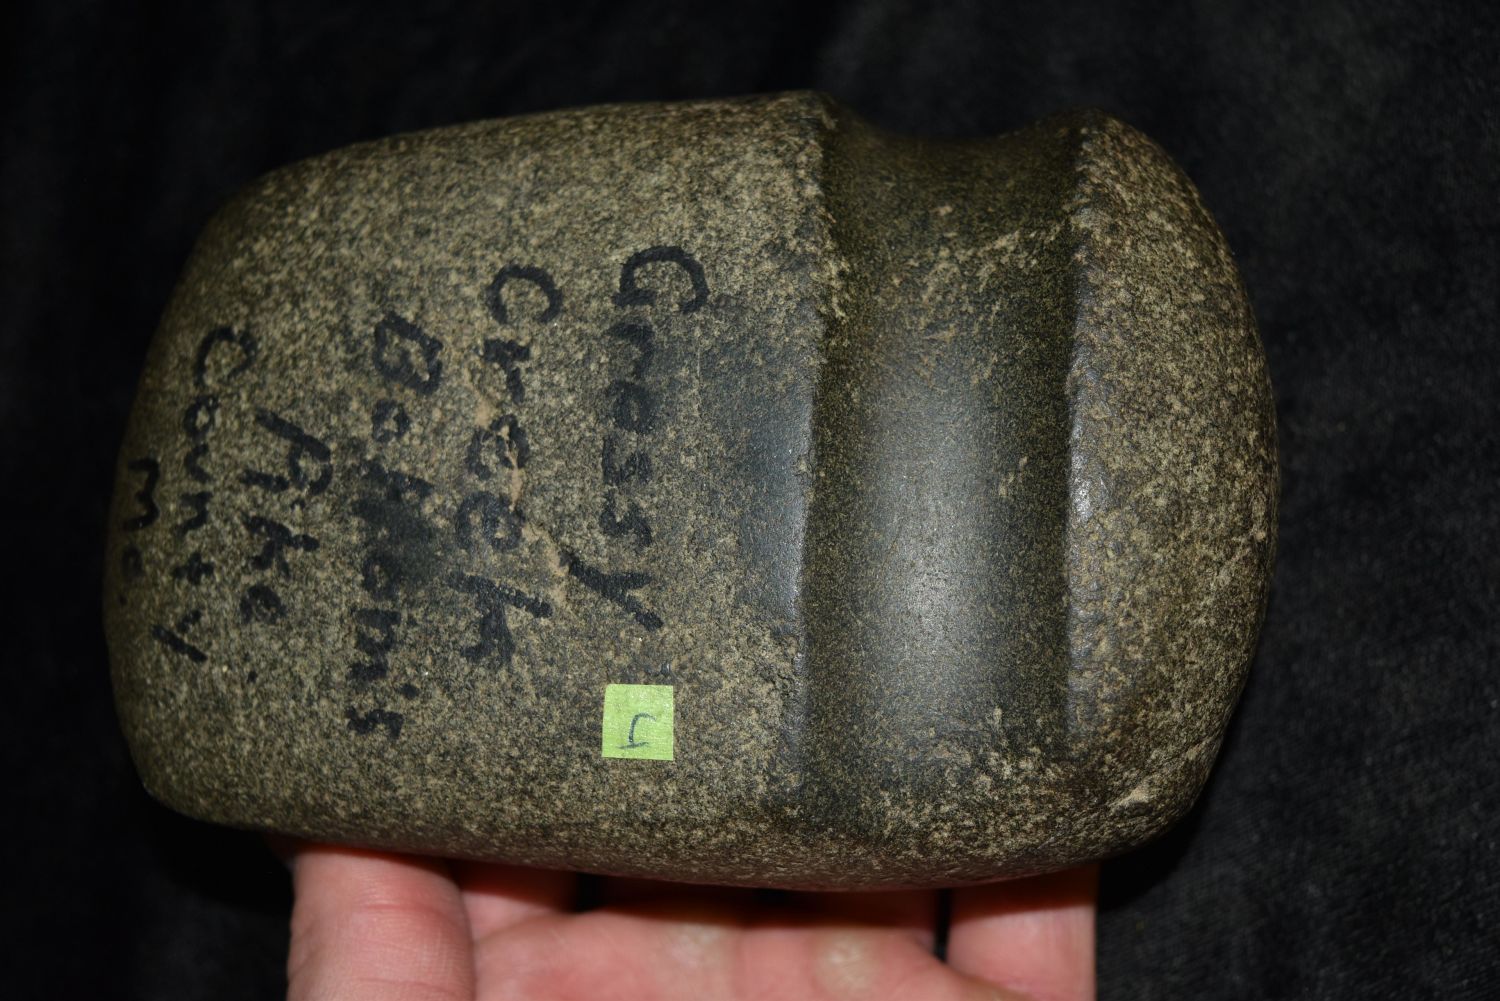 Grassy
Creek
Bottoms
Pike
County
Mo